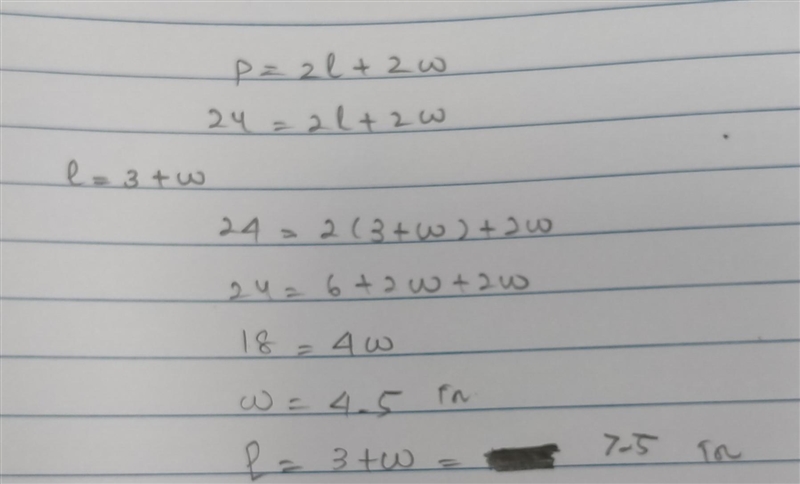 P = 2l + 2w
24 = 2l + 2w
l = 3 + w
24 = 2(3+w) + 2w
24 = 6 + 2w + 2w
18 = 4w
w = 4.5 in
l = 3 + w = 7.5 in